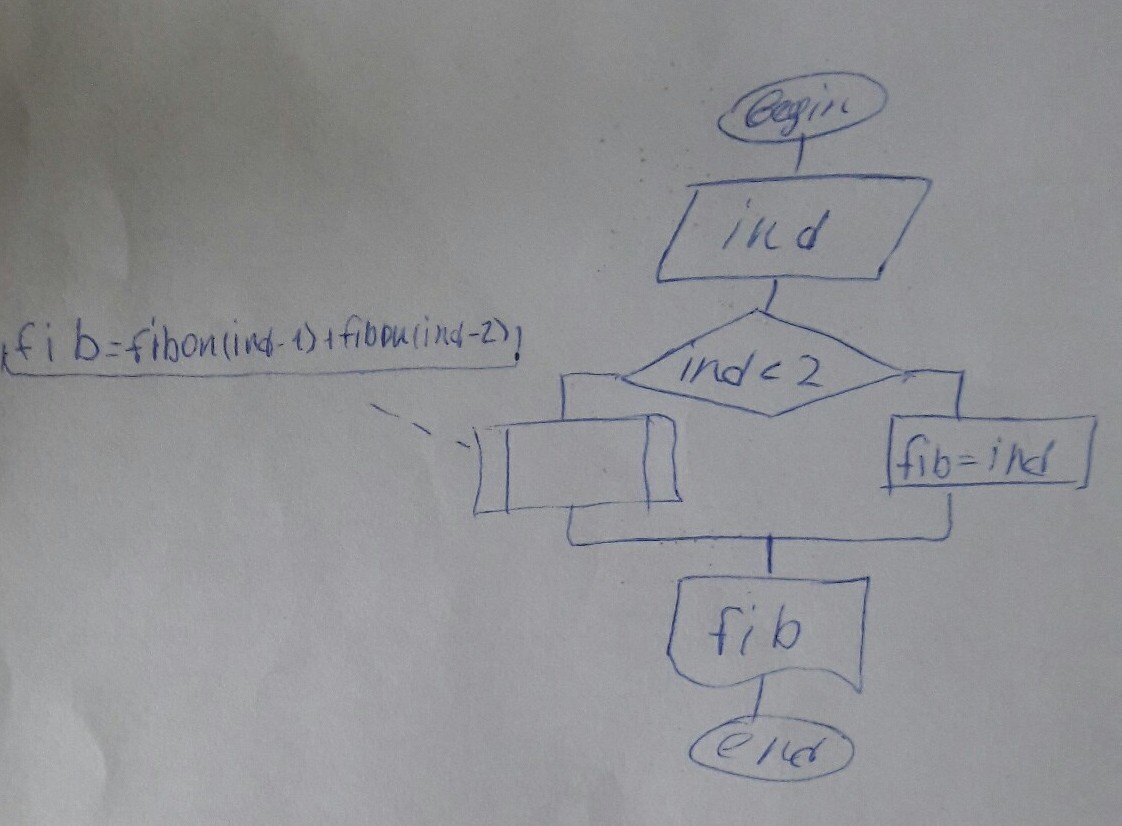 Begin
ind
fib=fibon(ind-1)+fibon(ind-2);
ind<2
fib=ind
fib
end